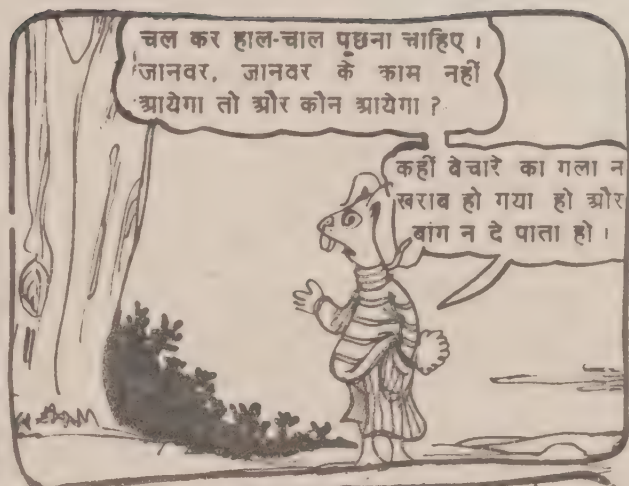 चल कर हाल-चाल पूछना चाहिए ।
जानवर, जानवर के काम नहीं
आयेगा तो और कौन आयेगा ?
कहीं बेचारे का गला न
खराब हो गया हो और
बांग न दे पाता हो ।